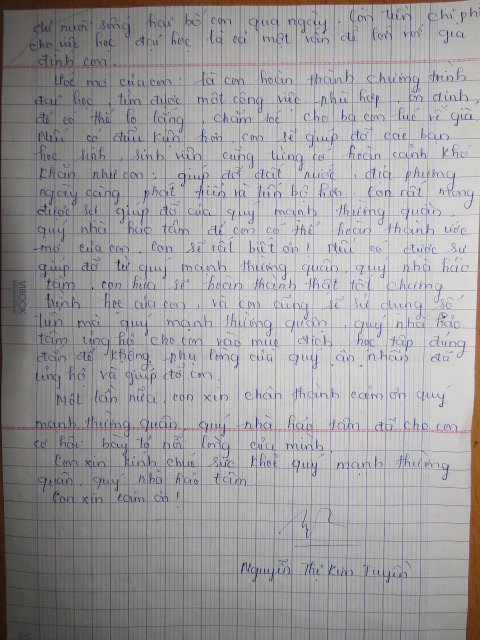 đủ nuôi sống hai bố con qua ngày. Còn tiền chi phí
cho việc học đại học là cả một vấn đề lớn với gia
đình con.
Ước mơ của con: là con hoàn thành chương trình
đại học, tìm được một công việc phù hợp, ổn định,
để có thể lo lắng, chăm sóc cho ba con lúc về già
Nếu có điều kiện hơn, con sẽ giúp đỡ các bạn
học sinh, sinh viên cũng từng có hoàn cảnh khó
khăn như con: giúp đỡ đất nước, địa phương
ngày càng phát triển và tiến bộ hơn. Con rất mong
được sự giúp đỡ của quý mạnh thường quân
quý nhà hảo tâm để con có thể hoàn thành ước
mơ của con. Con sẽ rất biết ơn! Nếu có được sự
giúp đỡ từ quý mạnh thường quân, quý nhà hảo
tâm, con hứa sẽ hoàn thành thật tốt chương
trình học của con, và con cũng sẽ sử dụng số
tiền mà quý mạnh thường quân, quý nhà hảo
tâm ủng hộ cho con vào mục đích học tập đúng
đắn để không phụ lòng của quý ân nhân đã
ủng hộ và giúp đỡ con.
Một lần nữa, con xin chân thành cảm ơn quý
mạnh thường quân, quý nhà hảo tâm đã cho con
cơ hội bày tỏ nỗi lòng của mình
Con xin kính chúc sức khoẻ quý mạnh thường
quân, quý nhà hảo tâm
Con xin cảm ơn!
Nguyễn Thị Kim Tuyền
VIBOOK